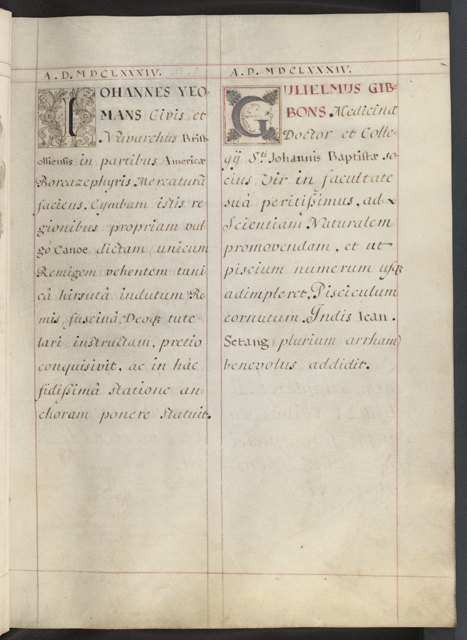 A. D. MDCLXXXIV.
IOHANNES YEO-
MANS Civis et
Navarchus Brist-
olliensis in partibus Americæ
Boreazephyris Mercaturā
faciens, Cymbam istis re
gionibus propriam vul
gò Canoe dictam unicum
Remigem vehentem tuni
câ hirsutâ indutum Re
mis, fuscinâ, Deoq; tute-
lari instructam, pretio
conquisivit, ac in hâc
fidissimâ statione an-
choram ponere statuit.
A. D. MDCLXXXIV.
GULIELMUS GIB-
BONS Medicinæ
Doctor et Colle-
gij Sti. Johannis Baptistæ so
cius, Vir in facultate
suâ peritissimus, ad
Scientiam Naturalem
promovendam, et ut
piscium numerum usq;
adimpleret, Pisciculum
cornutum, Indis Iean-
Setang plurium arrham
benevolus addidit.